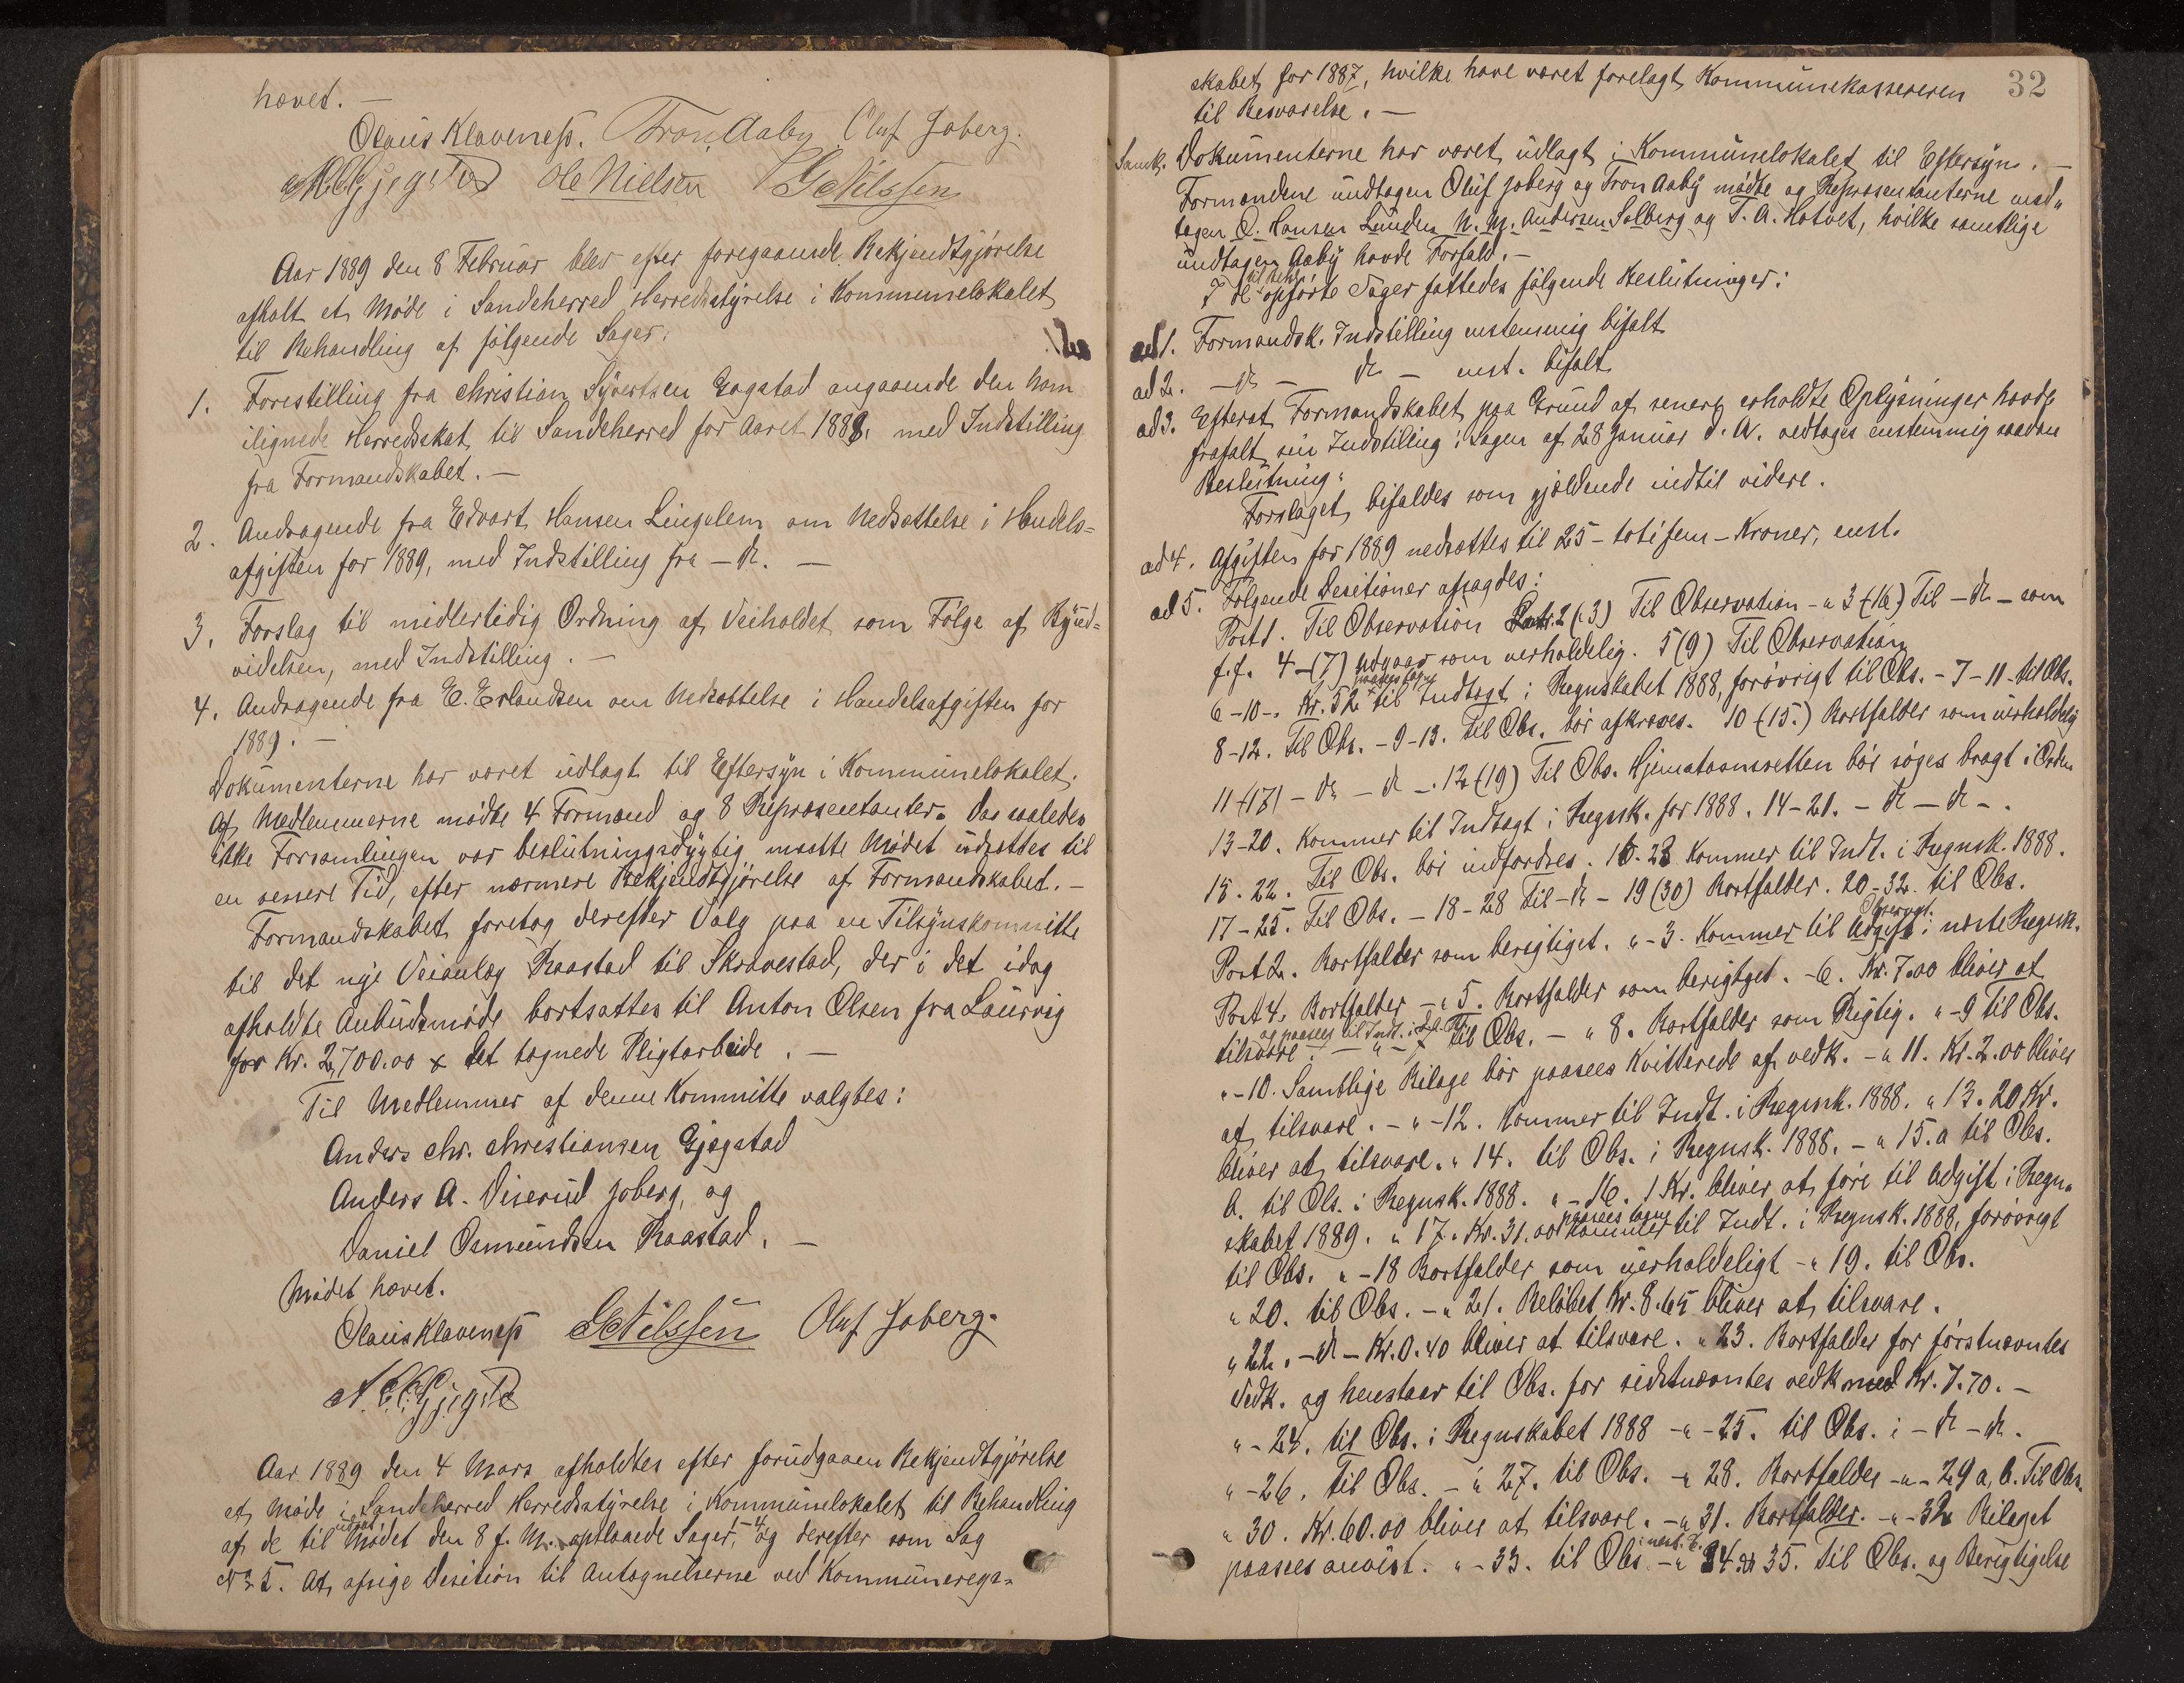 hævet. —
Olaus Klaveness. Tron Aaby Oluf Joberg.
Ole Nielsen
Aar 1889 den 8 Februar blev efter foregaaende Bekjendtgjørelse
afholt et Møde i Sandeherred Herredsstyrelse i Kommunelokalet
til Behandling af følgende Sager:
1. Forestilling fra Christian Syvertsen Gogstad angaaende den ham
ilignede Herredsskat til Sandeherred for Aaret 1888, med Indstilling
fra Formandskabet. —
2. Andragende fra Edvart Hansen Lingelem om Nedsættelse i Handels=
afgiften for 1889, med Indstilling fra — do. —
3. Forslag til midlertidig Ordning af Veiholdet som Følge af Byud=
videlsen, med Indstilling. —
4. Andragende fra E. Erlandsen om Nedsættelse i Handelsafgiften for
1889. —
Dokumenterne har været udlagt til Eftersyn i Kommunelokalet.
Af Medlemmerne mødte 4 Formænd og 8 Repræsentanter. Da saaledes
ikke Forsamlingen var beslutningsdygtig maatte Mødet udsættes til
en senere Tid, efter nærmere Bekjendtgjørelse af Formandskabet. —
Formandskabet foretog derefter Valg paa en Tilsynskommitte
til det nye Veianlæg Raastad til Skravestad, der i det idag
afholdte Anbudsmøde bortsattes til Anton Olsen fra Laurvig
for Kr. 2,700.00 x det tegnede Pligtarbeide. —
Til Medlemmer af denne Kommitte valgtes:
Anders Chr. Christiansen Gjøgstad
Anders A. Viserud Joberg, og
Daniel Osmundsen Raastad. —
Mødet hævet.
Olaus Klaveness Oluf Joberg.
Aar 1889 den 4 Mars afholdtes efter forudgaaen Bekjendtgjørelse
et Møde i Sandeherred Herredsstyrelse i Kommunelokalet til Behandling
af de til Mødet den 8 f. M. opslaaede Sager, 1-4 og derefter som Sag
No 5. At afsige Desition til Antegnelserne ved Kommuneregn=
32
skabet for 1887, hvilke have været forelagt Kommunekassereren
til Besvarelse. —
Samk. Dokumenterne har været udlagt i Kommunelokalet til Eftersyn. —
Formændene undtagen Oluf Joberg og Tron Aaby mødte og Repræsentanterne und„
tagen O. Hansen Lunden N. M. Andersen Solberg og T. A. Hotvet, hvilke samtlige
undtagen Aaby havde Forfald. —
I de til Beh. opførte Sager fattedes følgende Beslutninger:
ad 1. Formandsk. Indstilling enstemmig bifalt
ad 2. — do — do — enst. bifalt
ad 3. Efterat Formandskabet paa Grund af senere erholdte Oplysninger havde
frafalt sin Indstilling i Sagen af 28 Januar d. A. vedtages enstemmig saadan
Beslutning:
Forslaget bifaldes som gjældende indtil videre.
ad 4. Afgiften for 1889 nedsættes til 25 - totifem - Kroner, enst.
ad 5. Følgende Desitioner afsagdes:
Post 1. Til Observation 2 (3) Til Observation - „ 3 (16) Til — do — som
f.f. 4 - (7) Udgaar som uerholdelig. 5 (9) Til Observation
6 - 10 -. Kr. 52 paasees tagne til Indtægt i Regnskabet 1888, forøvrigt til Obs. - 7 - 11 - til Obs.
8-12. til Obs. - 9-13. til Obs. bør afkræves. 10 (15.) Bortfalder som uerholdelig
11 (17) — do — do —. 12 (19) Til Obs. Hjemstavnsretten bør søges bragt i Orden
13-20. Kommer til Indtægt i Regnsk. for 1888. 14-21. — do — do —.
15. 22. Til Obs. bør indfordres. 16. 23 Kommer til Indt. i Regnsk. 1888.
17-25. Til Obs. — 18-28 Til — do — 19 (30) Bortfalder. 20-32. til Obs.
Post 2. Bortfalder som berigtiget. „ - 3. Kommer til Observat. i næste Regnsk.
Post 4. Bortfalder — „ 5. Bortfalder som berigtiget. - 6. Kr. 7.00 bliver at
tilsvare og paasees til Indt. — „ — 7 Til Obs. — „ 8. Bortfalder som Rigtig. „ - 9 Til Obs.
„ - 10. Samtlige Bilage bør paasees Kvitterede af vedk. - „ 11. Kr. 2.00 bliver
at tilsvare. - „ - 12. Kommer til Indt. i Regnsk. 1888. „ 13. 20 Kr.
bliver at tilsvare. „ 14. til Obs. i Regnsk. 1888. - „ 15. a til Obs.
b. til Obs. i Regnsk. 1888. „ - 16. 1 Kr. bliver at føre til Udgift i Regn„
skabet 1889. „ 17. Kr. 31.00 paasees tagne til Indt. i Regnsk. 1888, forøvrigt
til Obs. „ - 18 Bortfalder som uerholdeligt - „ 19. til Obs.
„ 20. til Obs. - „ 21. Beløbet Kr. 8.65 bliver at tilsvare.
„ 22. — do — Kr. 0.40 bliver at tilsvare. „ 23. Bortfalder for førstnævntes
Vedk. og henstaar til Obs. for sidstnævntes vedk med Kr. 7.70. —
„ - 24. til Obs. i Regnskabet 1888 - „ - 25. til Obs. i — do — do.
„ - 26. Til Obs. - „ 27. til Obs. - „ 28. Bortfalder - „ - 29 a, b. Til Obs.
„ 30. Kr. 60.00 bliver at tilsvare. - „ 31. Bortfalder. - „ - 32 Bilaget
paasees anvist. „ - 33. til Obs. - „ 34 35. Til Obs. og Berigtigelse